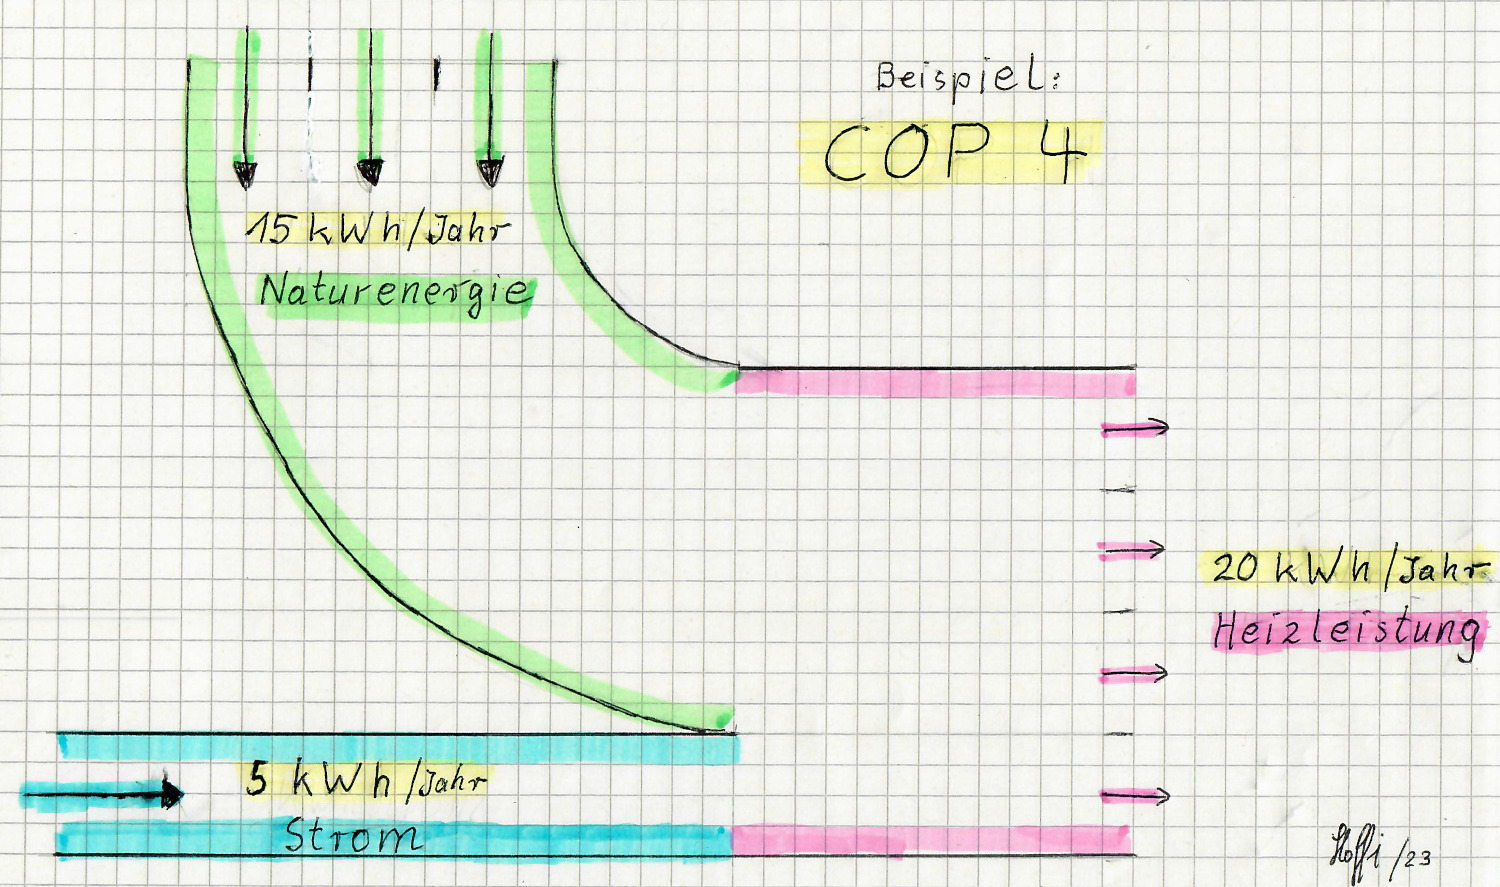 Beispiel:
COP 4
15 kWh/Jahr
Naturenergie
20 kWh/Jahr
Heizleistung
5 kWh/Jahr
Strom
Hoffi /23